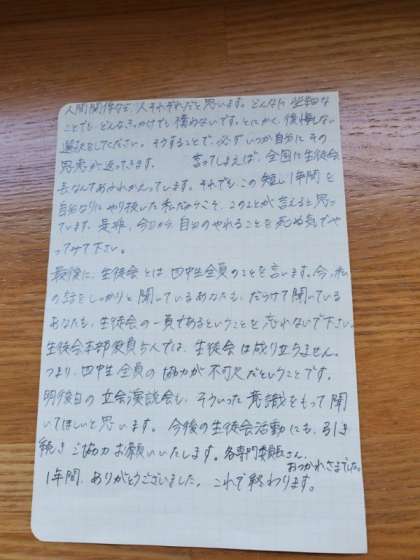 人間関係など、人それぞれだと思います。どんなに些細な
ことでも、どんなきっかけでも構わないです。とにかく、後悔しない
選択をしてください。そうすることで、必ずいつか自分にその
恩恵が返ってきます。 言ってしまえば、全国に生徒会
長なんてあふれかえっています。それでも、この短い1年間を
自分なりにやり抜いた私だからこそ、このことが言えると思っ
ています。是非、今日から自分のやれることを死ぬ気でや
ってみて下さい。
最後に、生徒会とは四中生全員のことを言います。今、私
の話をしっかりと聞いているあなたも、だらけて聞いている
あなたも、生徒会の一員であるということを忘れないで下さい。
生徒会本部役員5人では、生徒会は成り立ちません。
つまり、四中生全員の協力が不可欠だということです。
明後日の立会演説会も、そういった意識をもって聞
いてほしいと思います。今後の生徒会活動にも、引き
続きご協力お願いいたします。各専門委員長さん、
おつかれさまでした。
1年間、ありがとうございました。これで終わります。